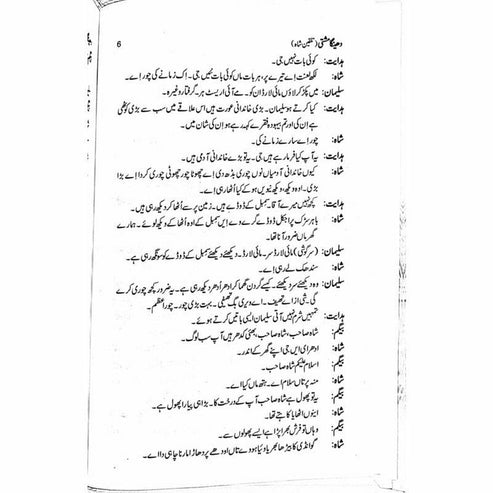 دھینگا مشتی (تلقین شاہ) 6
ہدایت: کوئی بات نہیں جی۔
شاہ: لکھ لعنت اے تیرے پر، ہر بات ماں کوئی بات نہیں جی۔ اک زمانے کی چور اے۔
سلیمان: میں پکڑ کر لاؤں مائی لارڈ ان کو۔ مے آئی اریسٹ ہر۔ گرفتار وغیرہ۔
ہدایت: کیا کرتے ہو سلیمان۔ بڑی خاندانی عورت ہیں اس علاقے میں سب سے بڑی کوٹھی
ہے ان کی اور تم بیہودہ فقرے کہہ رہے ہو ان کی شان میں۔
شاہ: چور اے سارے زمانے کی۔
ہدایت: یہ آپ کیا فرما رہے ہیں جی۔ یہ تو بڑے خاندانی آدمی ہیں۔
شاہ: کیوں خاندانی آدمیاں نوں چوری بندھ دی اے چھوٹا چور چھوٹی چوری کردا اے بڑا
بڑی۔ اوہ دیکھ، دیکھ نیویں ہو کے کیا اٹھا رہی اے۔
ہدایت: کچھ نہیں میرے آقا۔ سمبل کے ڈوڈے ہیں۔ زمین پر سے اٹھا کر دیکھ رہی ہیں۔
شاہ: باہر سڑک پر اجکل ڈوڈے گرے دے ایں سمبل کے اوہ اٹھا کے دیکھ لوئے۔ مارے
گھر ماں ضرور آنا تھا۔
سلیمان: (سرگوشی) مائی لارڈ سر۔ مائی لارڈ۔ دیکھئے دیکھئے سمبل کے ڈوڈے کو سونگھ رہی ہے۔
شاہ: سندھک لے رہی اے۔
سلیمان: وہ دیکھئے سر دیکھئے۔ کیسے گردن گھما کر ادھر ادھر دیکھ رہی ہے۔ یہ ضرور کچھ چوری کرے
گی۔ شی از اے تھیف۔ اے ویری بگ تھیفی۔ بہت بڑی چور۔ چور اعظم۔
ہدایت: تمہیں شرم نہیں آتی سلیمان ایسی باتیں کرتے ہوئے۔
بیگم: شاہ صاحب، شاہ صاحب، بھئی کدھر ہیں آپ سب لوگ۔
شاہ: ادھر ای ایں جی اپنے گھر کے اندر۔
بیگم: اسلام علیکم شاہ صاحب۔
شاہ: منہ پر تاں سلام اے۔ ہتھ ماں کیا اے۔
بیگم: یہ تو پھول ہے شاہ صاحب آپ کے درخت کا۔ بڑا ہی پیارا پھول ہے۔
شاہ: اینوں اٹھایا کاہتے تھا۔
بیگم: وہاں تو فرش بھرا پڑا ہے ایسے پھولوں سے۔
شاہ: گوانڈی کا بیڑھا بھریا ویا ہووے تاں اودھے پر دھاڑا مارنا چاہی دا اے۔